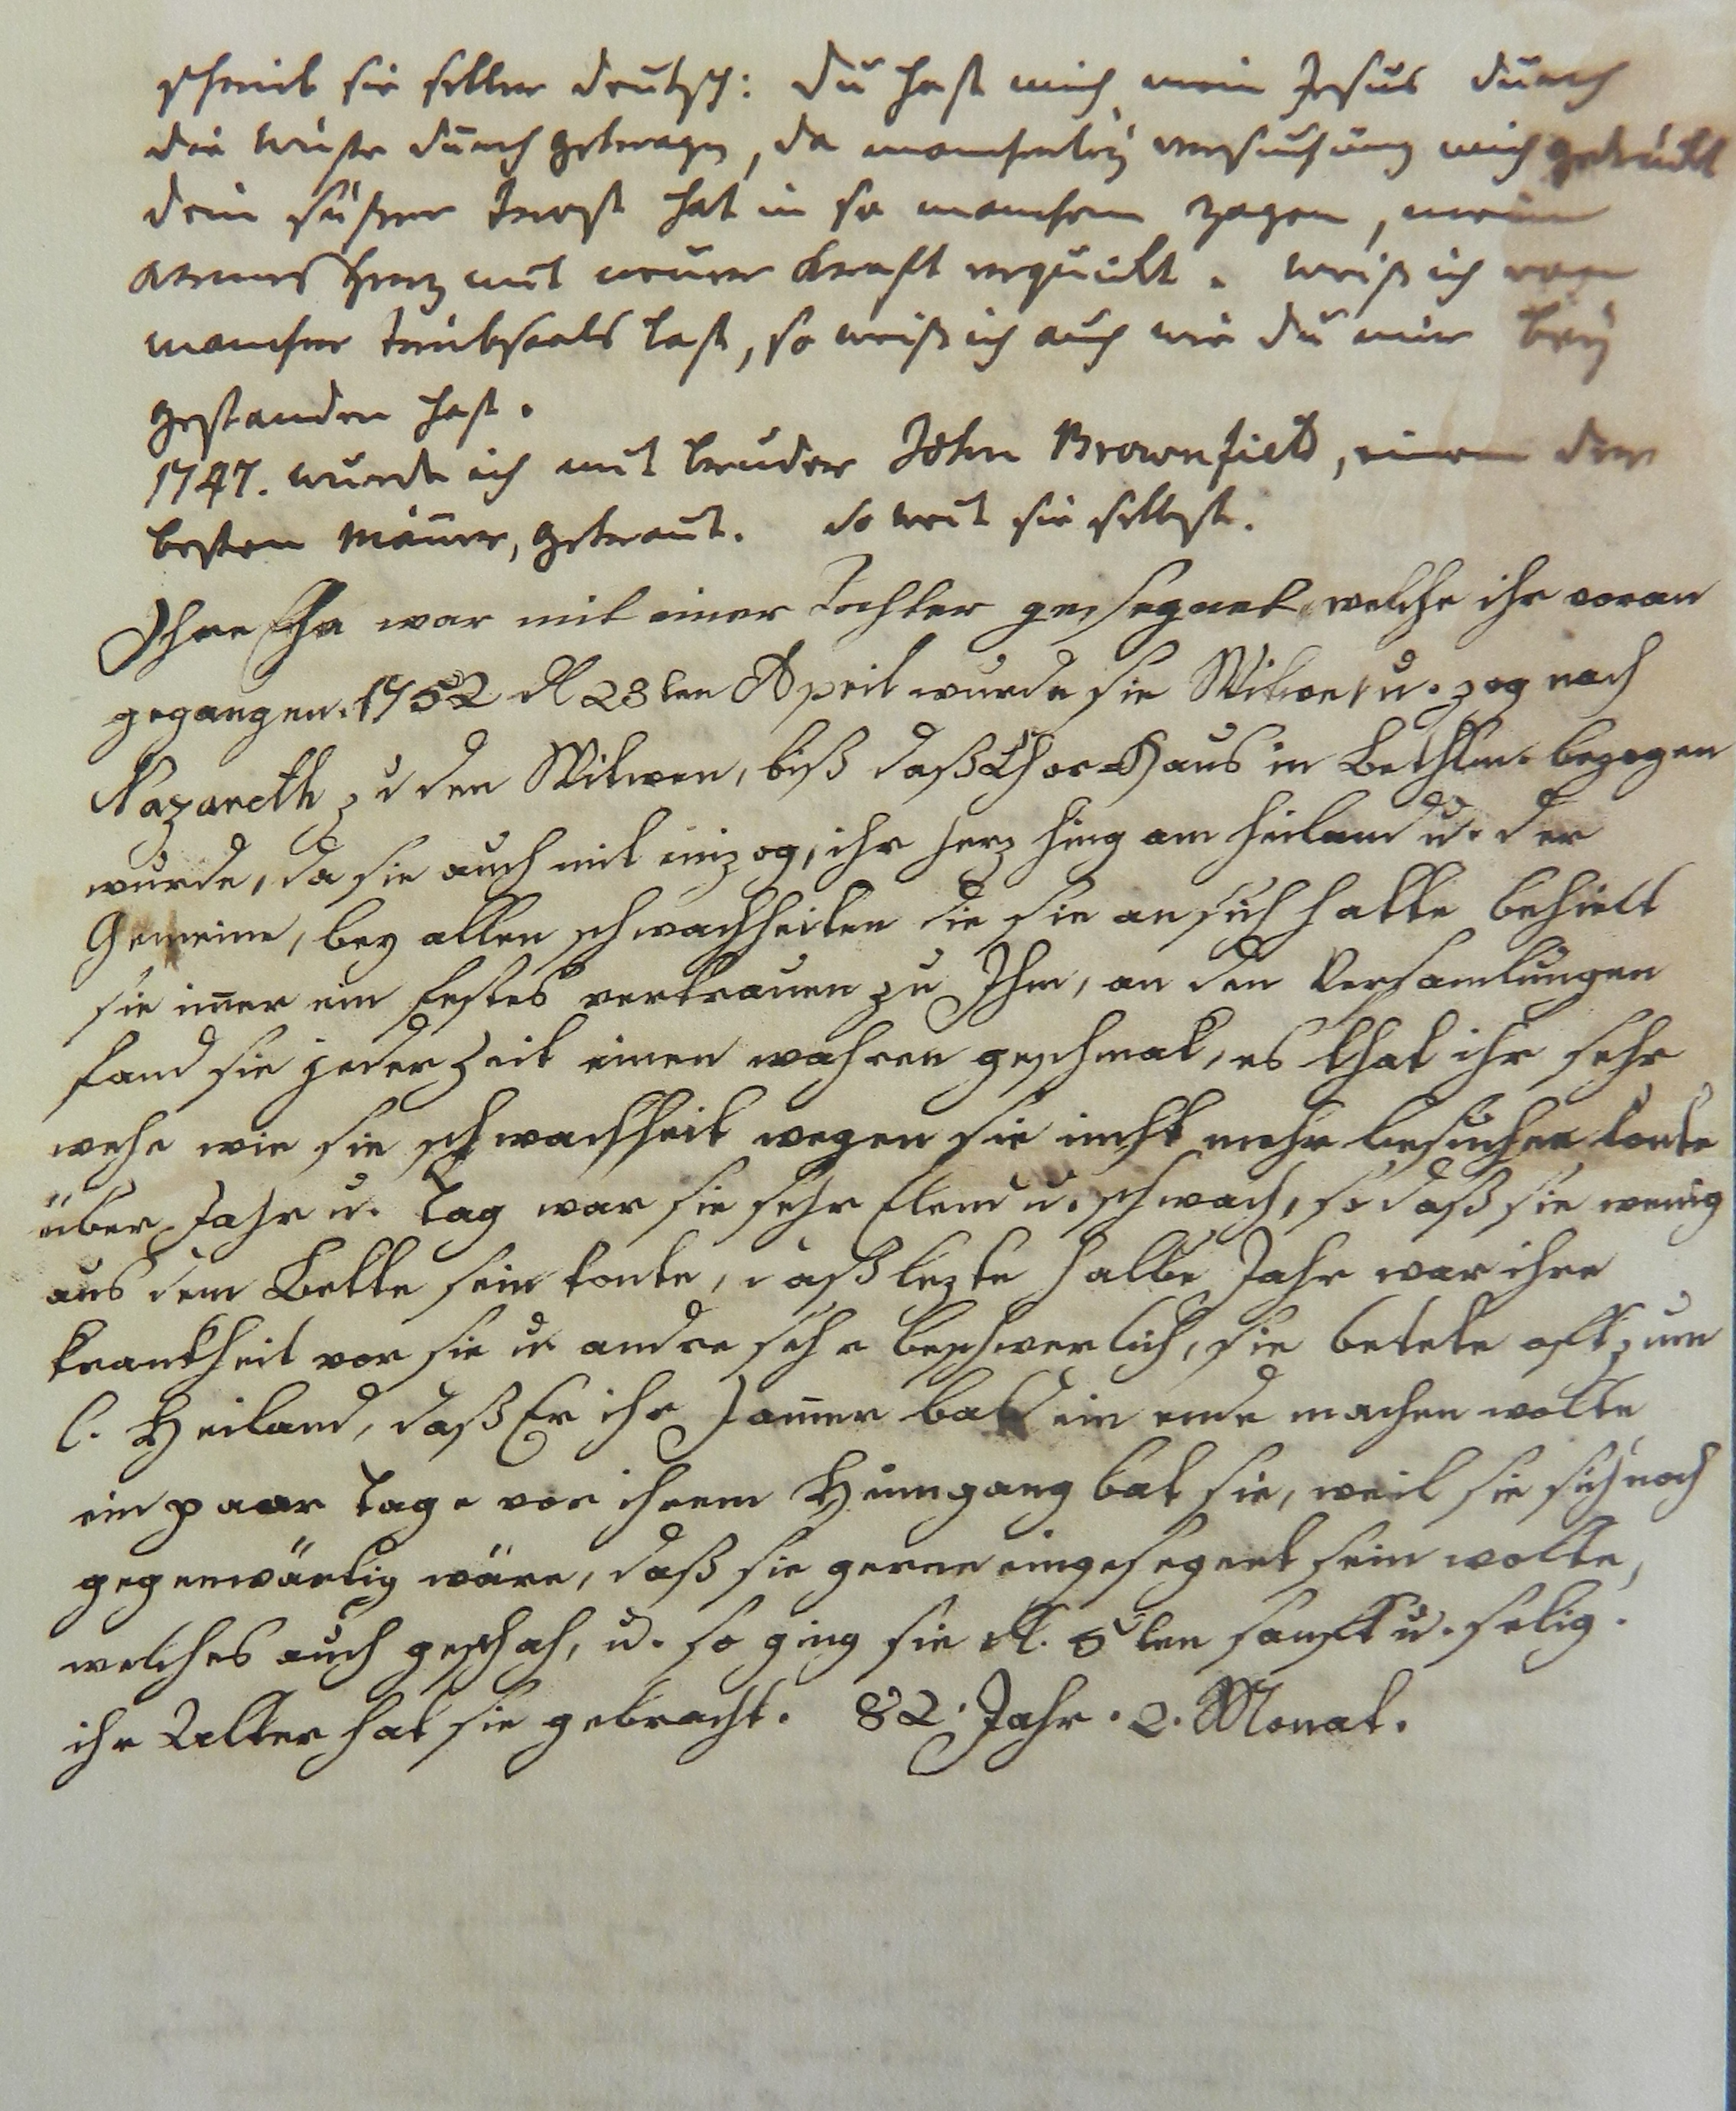 schreib sie selber deutsch: du hast mich, mein Jesus durch
die wüste durch getragen, da mancherleÿ versuchung mich gedrückt
dein süßer trost hat in so manchem zagen, mein
armes Herz mit neuer kraft erquickt. weiß ich von
mancher trübsaals last, so weiß ich auch wie du mir beÿ
gestanden hast.
1747. wurde ich mit bruder John Brownfield, einem der
besten mäner, getraut. so weit sie selbst.
Ihre Ehe war mit einer Tochter gesegnet, welche ihr voran
gegangen. 1752 d 23ten April wurde sie Witwe, u. zog nach
Nazareth zu den Witwen, biß daß Chor-Haus in Bethlm. bezogen
wurde, da sie auch mit einzog, ihr herz hing am heiland u. der
Gemeine, bey allen schwachheiten die sie an sich hatte behielt
sie im̅er ein festes vertrauen zu Ihm, an den Versamlungen
fand sie jeder Zeit einen wahren geschmak, es that ihr sehr
wehe wie sie schwachheit wegen sie nicht mehr besuchen konte
über Jahr u. Tag war sie sehr Elend u. schwach, so daß sie wenig
aus dem Bette sein konte, daß lezte halbe Jahr war ihre
krankheit vor sie u andre sehr beschwerlich, sie betete oft zum
l. Heiland, daß Er ihr Jam̅er bald ein ende machen wolte
ein paar Tage vor ihrem Heimgang bat sie, weil sie sich noch
gegenwärtig wäre, daß sie gerne eingesegnet sein wolte,
welches auch geschah, u. so ging sie d. 5ten sanft u. selig.
ihr Alter hat sie gebracht. 82. Jahr. 2. Monat.